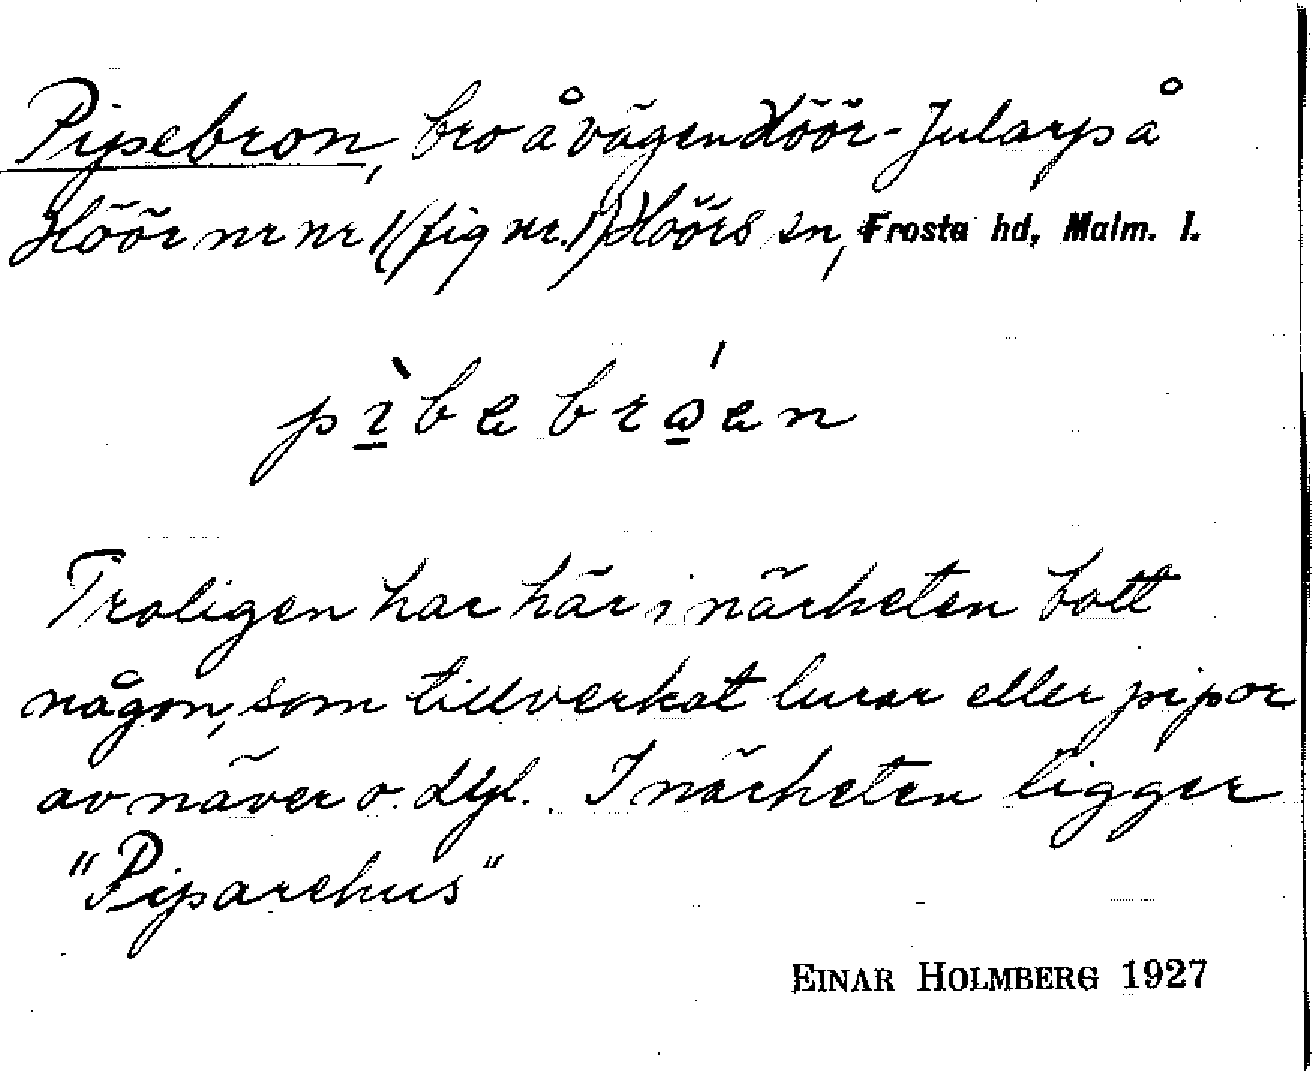 Pipebron, bro å vägen Höör-Jularp å
Höör nr nr 1 (fig nr. 1) Höörs sn, Frosta hd, Malm. l.
pìbebróen
Troligen har här i närheten bott
någon, som tillverkat lurar eller pipor
av näver o. dyl. I närheten ligger
"Piparehus"
EINAR HOLMBERG 1927